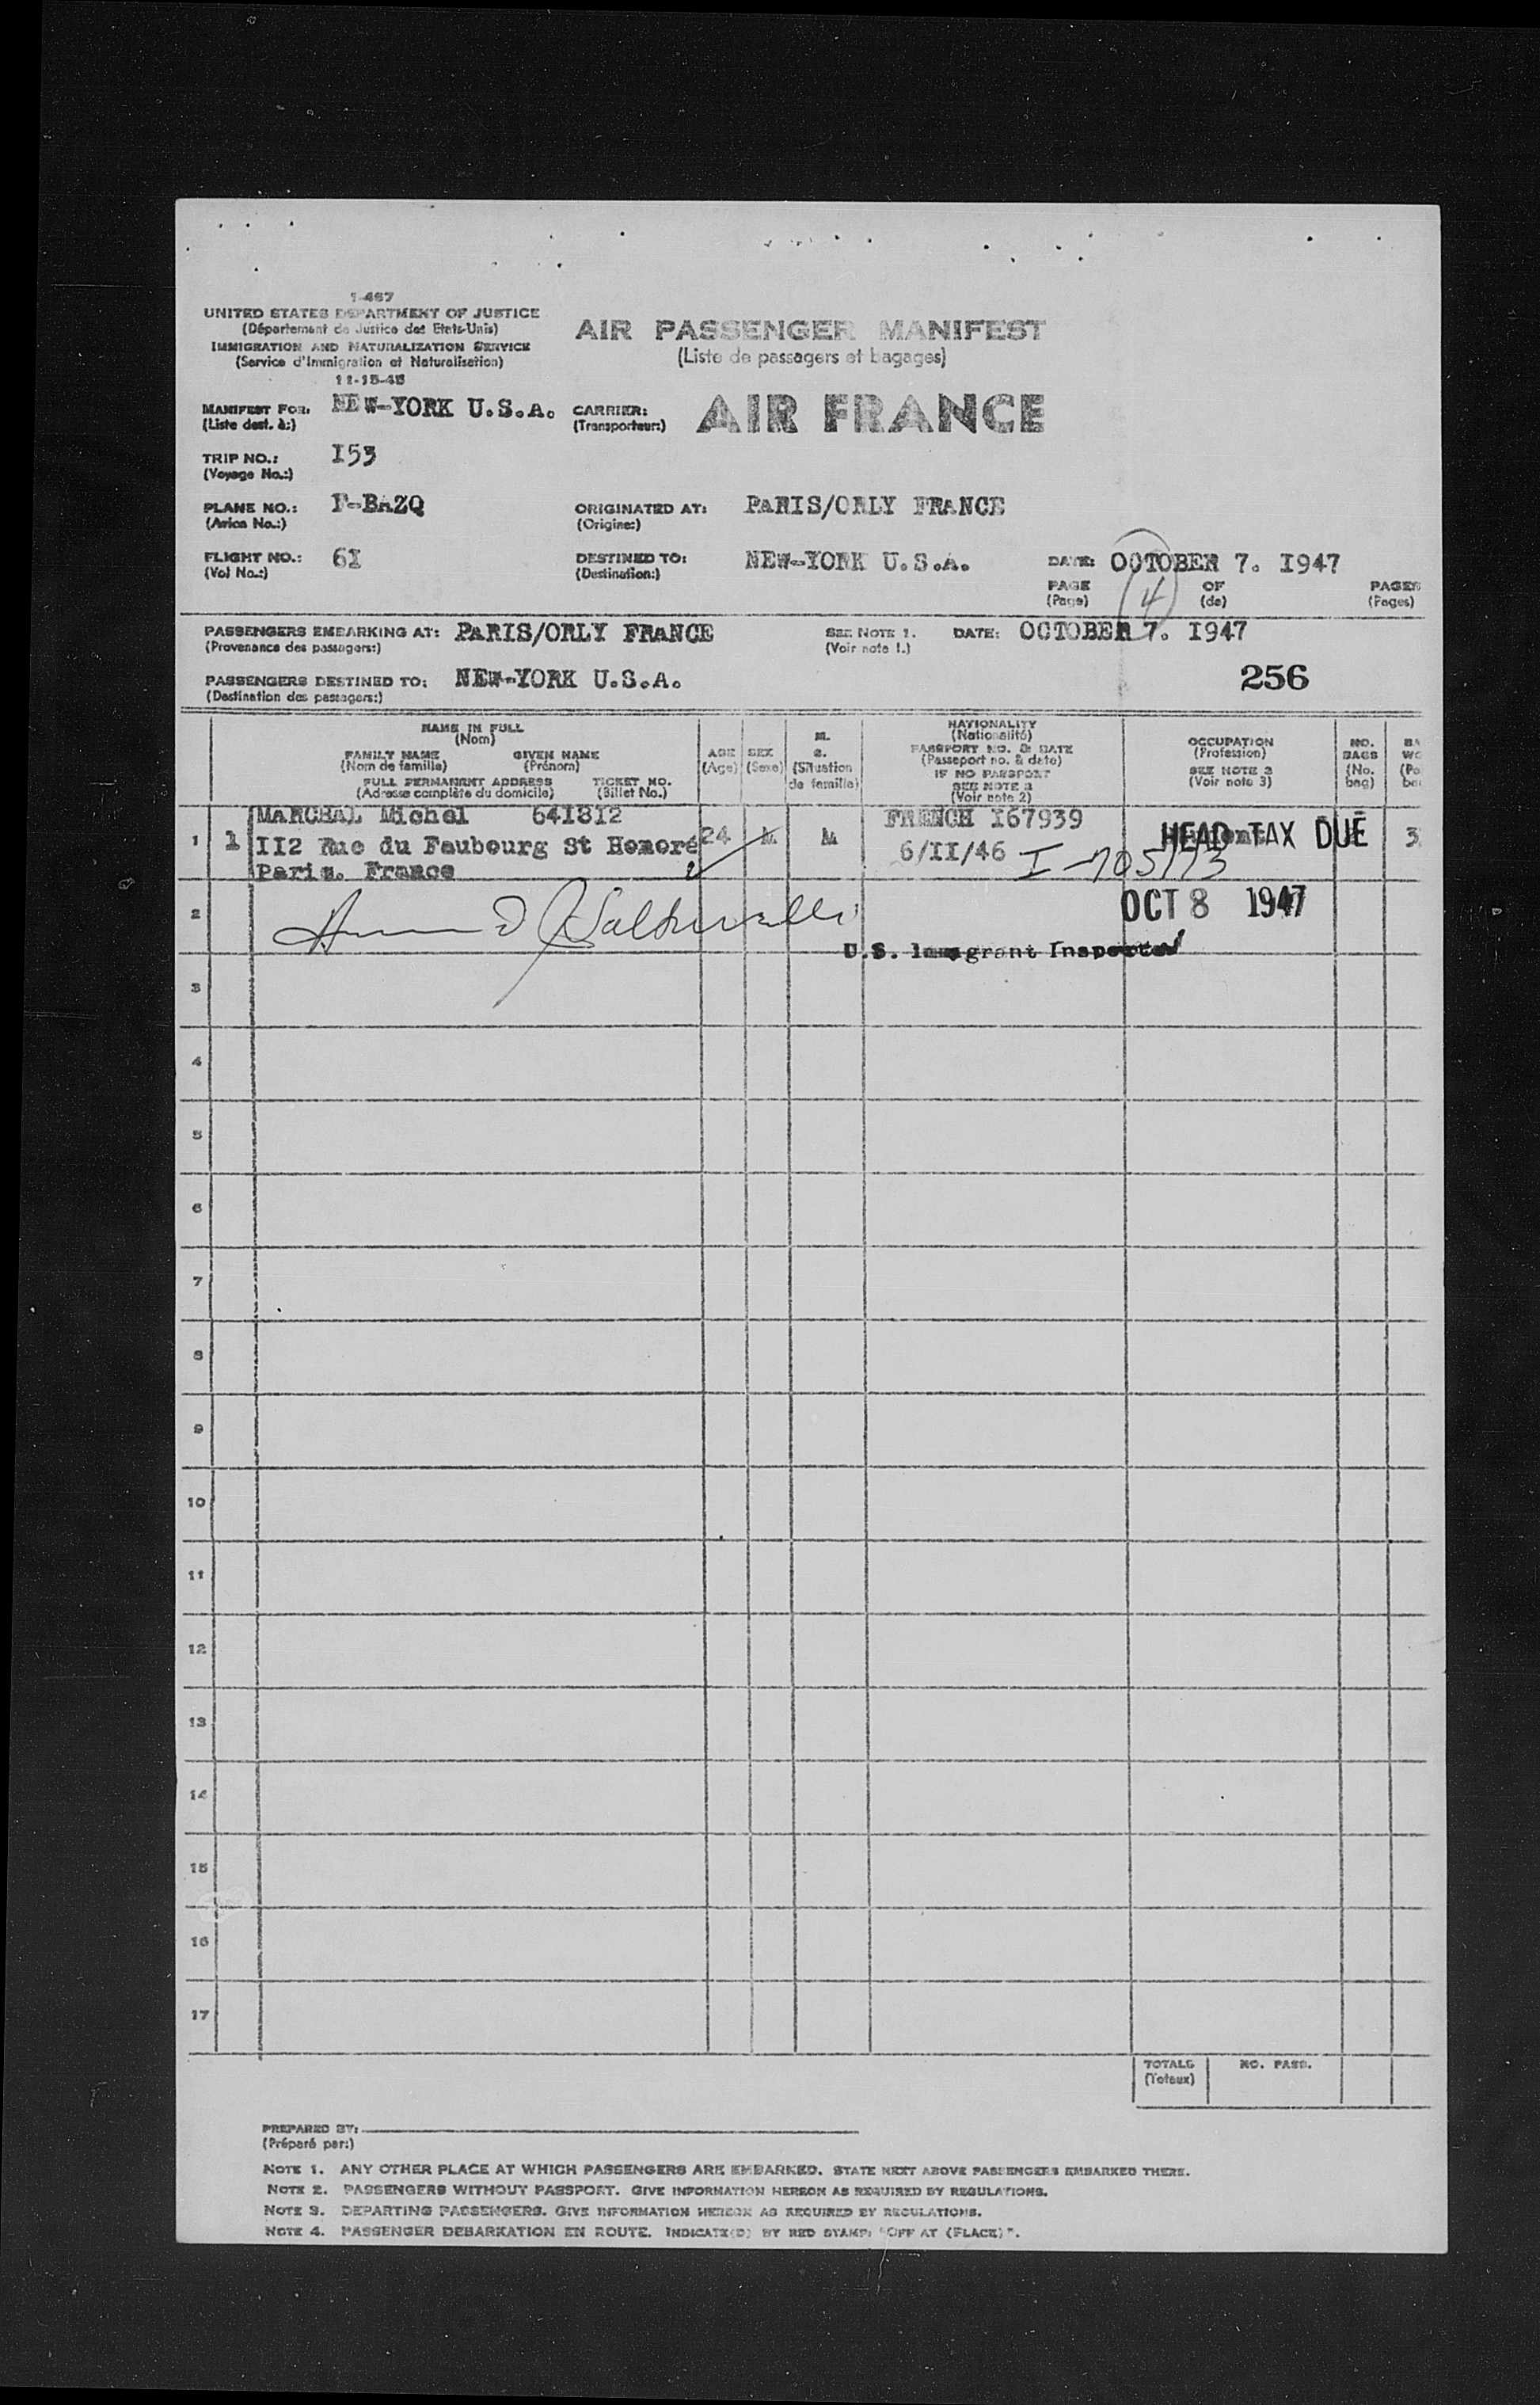 1-467
UNITED STATES DEPARTMENT OF JUSTICE
(Département de Justice des Etats-Unis)
IMMIGRATION AND NATURALIZATION SERVICE
(Service d'Immigration et Naturalisation)
11-15-45
AIR PASSENGER MANIFEST
(Liste de passagers et bagages)
MANIFEST FOR: NEW-YORK U.S.A. CARRIER: AIR FRANCE
(Liste dest. à:) (Transporteur:)
TRIP NO.: I53
(Voyage No.:)
PLANE NO.: F-BAZQ ORIGINATED AT: PARIS/ORLY FRANCE
(Avion No.:) (Origine:)
FLIGHT NO.: 6I DESTINED TO: NEW-YORK U.S.A. DATE: OCTOBER 7. I947
(Vol No.:) (Destination:)
PAGE (4) OF PAGES
(Page) (de) (Pages)
PASSENGERS EMBARKING AT: PARIS/ORLY FRANCE SEE NOTE 1. DATE: OCTOBER 7. I947
(Provenance des passagers:) (Voir note 1.)
PASSENGERS DESTINED TO: NEW-YORK U.S.A. 256
(Destination des passagers:)
NAME IN FULL
(Nom)
FAMILY NAME GIVEN NAME
(Nom de famille) (Prénom)
FULL PERMANENT ADDRESS TICKET NO.
(Adresse complète du domicile) (Billet No.)
AGE
(Age)
SEX
(Sexe)
M.
S.
(Situation
de famille)
NATIONALITY
(Nationalité)
PASSPORT NO. & DATE
(Passeport no. & date)
IF NO PASSPORT
SEE NOTE 2
(Voir note 2)
OCCUPATION
(Profession)
SEE NOTE 3
(Voir note 3)
NO.
BAGS
(No.
bag)
BA
WG
(Po
MARCHAL Michel 64I8I2 FRENCH I67939
1 1 II2 Rue du Faubourg St Honoré 24 M M 6/II/46 HEAD TAX DUE 3
Paris. France
2 OCT 8 1947
U.S. Immigrant Inspector
3
4
5
6
7
8
9
10
11
12
13
14
15
16
17
TOTALS NO. PASS.
(Totaux)
PREPARED BY:
(Préparé par:)
NOTE 1. ANY OTHER PLACE AT WHICH PASSENGERS ARE EMBARKED. STATE NEXT ABOVE PASSENGERS EMBARKED THERE.
NOTE 2. PASSENGERS WITHOUT PASSPORT. GIVE INFORMATION HEREON AS REQUIRED BY REGULATIONS.
NOTE 3. DEPARTING PASSENGERS. GIVE INFORMATION HEREON AS REQUIRED BY REGULATIONS.
NOTE 4. PASSENGER DEBARKATION EN ROUTE. INDICATE(D) BY RED STAMP: "OFF AT (PLACE)".